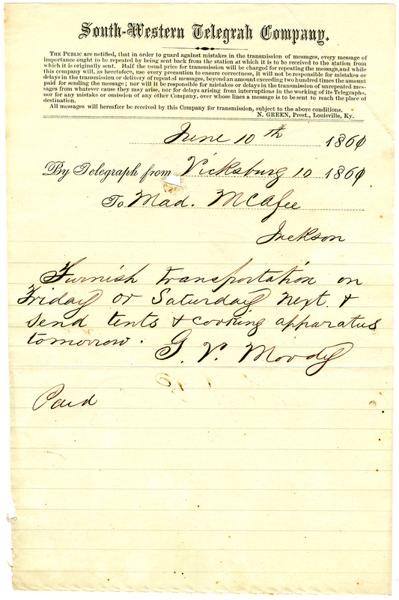 South-Western Telegrah Company.
THE PUBLIC are notified, that in order to guard against mistakes in the transmission of messages, every message of
importance ought to be repeated by being sent back from the station at which it is to be received to the station from
which it is originally sent. Half the usual price for transmission will be charged for repeating the message, and while
this company will, as heretofore, use every precaution to ensure correctness, it will not be responsible for mistakes or
delays in the transmission or delivery of repeated messages, beyond an amount exceeding two hundred times the amount
paid for sending the message; nor will it be responsible for mistakes or delays in the transmission of unrepeated mes-
sages from whatever cause they may arise, nor for delays arising from interruptions in the working of its Telegraphs,
nor for any mistake or omission of any other Company, over whose lines a message is to be sent to reach the place of
destination.
All messages will hereafter be received by this Company for transmission, subject to the above conditions.
N. GREEN, Prest., Louisville, Ky.
June 10th 1861
By Telegraph from Vicksburg 10 1861
To Mad. McAfee
Jackson
Furnish transportation on
Friday or Saturday next. &
send tents & cooking apparatus
tomorrow. G. V. Moody
Paid